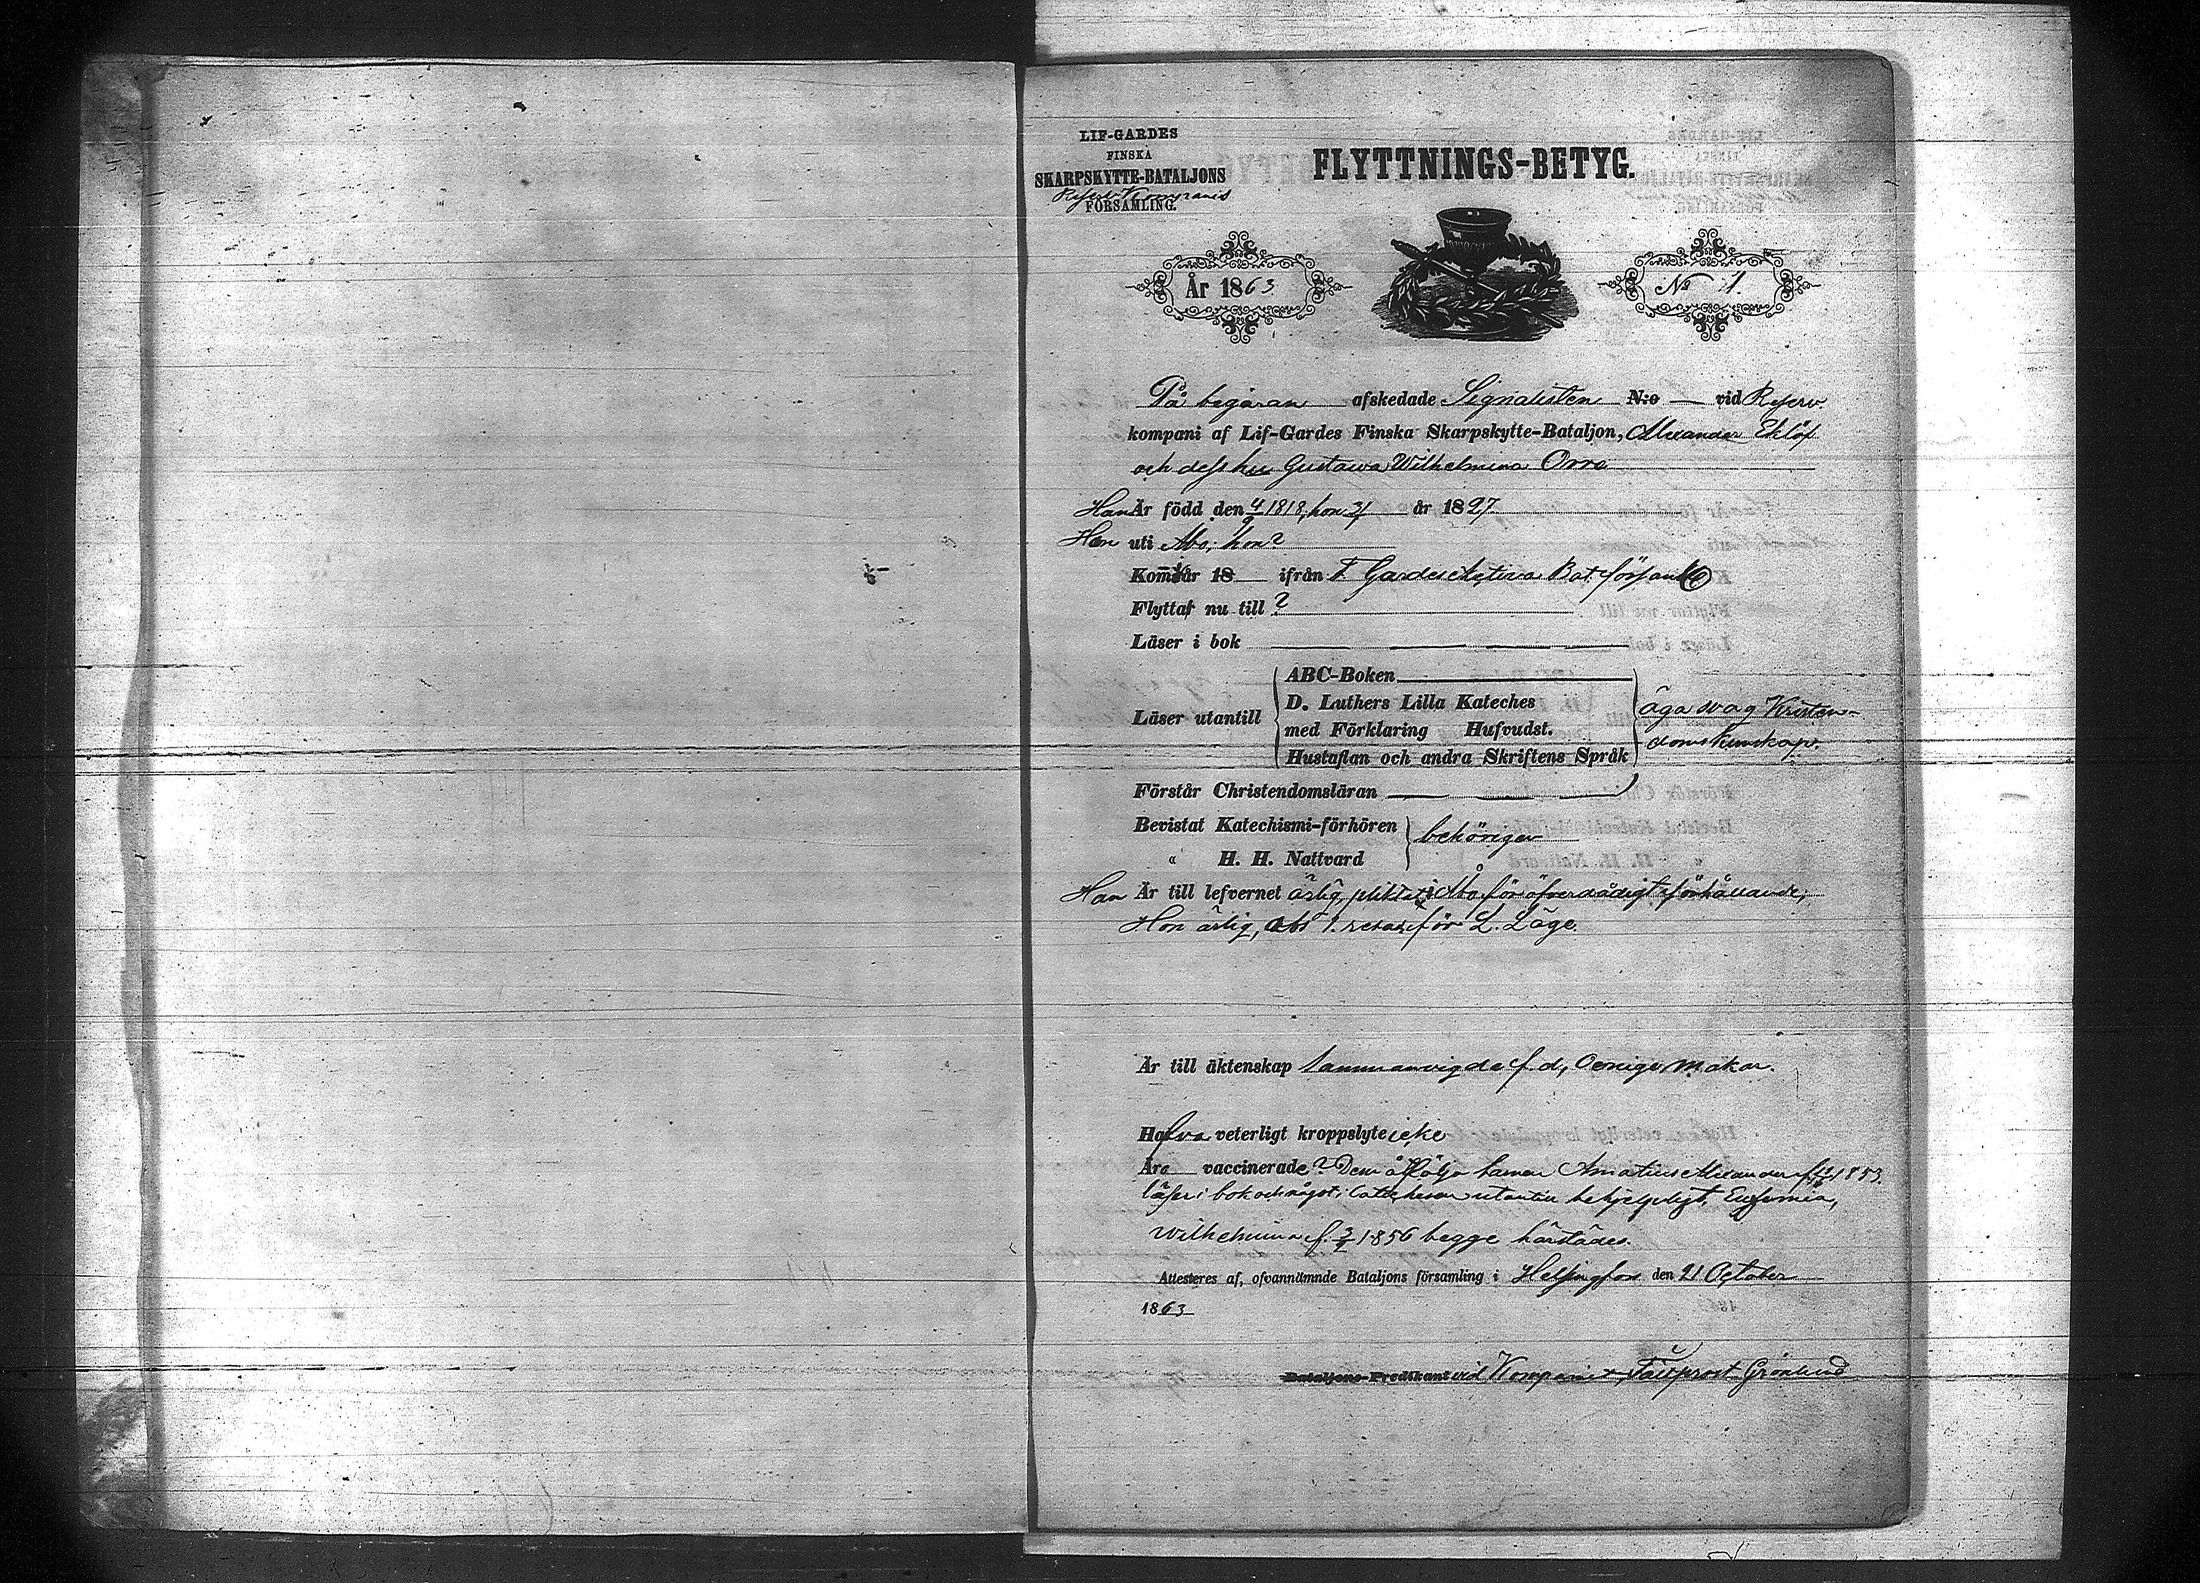 LIF-GARDES
FINSKA
SKARPSKYTTE-BATALJONS
Reserv Kompanis
FÖRSAMLING.
FLYTTNINGS-BETYG.
År 1863
No 1.
På begäran afskedade Signalisten N:o — vid Reserv.
kompani af Lif-Gardes Finska Skarpskytte-Bataljon, Alexander Eklöf
och dess hu Gustava Wilhelmina Orre
Han Är född den 4/ 1818, hon 21/ år 1827
Han uti Åbo, hon?
Kom år 18 ifrån F. Gardes Activa Bat. förs
Flyttar nu till ?
Läser i bok
ABC-Boken
Läser utantill D. Luthers Lilla Kateches
med Förklaring Hufvudst.
Hustaflan och andra Skriftens Språk
äga svag Kristen-
domskunskap.
Förstår Christendomsläran
Bevistat Katechismi-förhören
behörigen
" H. H. Nattvard
Han Är till lefvernet ärlig, pliktat i Åbo för öfverdådigt förhållande,
Hon ärlig, abs för L. Läge.
Är till äktenskap Sammanvigde f. d., Oeniga Makar.
Hafva veterligt kroppslyte icke
Äro vaccinerade? Dem åtfölja barnen Amatius Alexander f. 1853.
läser i bok och något i Catechesen utantill behjelpligt, Eufemia,
Wilhelmina f. 1856 begge härstädes.
Attesteres af, ofvannämnde Bataljons församling i Helsingfors den 21 October
1863
Bataljons-Predikant vid Kompaniet, Fältprost Grönlund